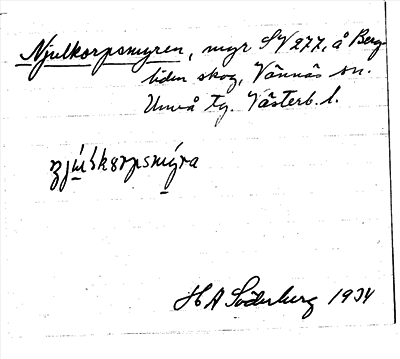 Njulkorpsmyren, myr SV 277, å Berg-
liden skog, Vännäs sn.
Umeå tg. Västerb. l.
H A Söderberg 1934